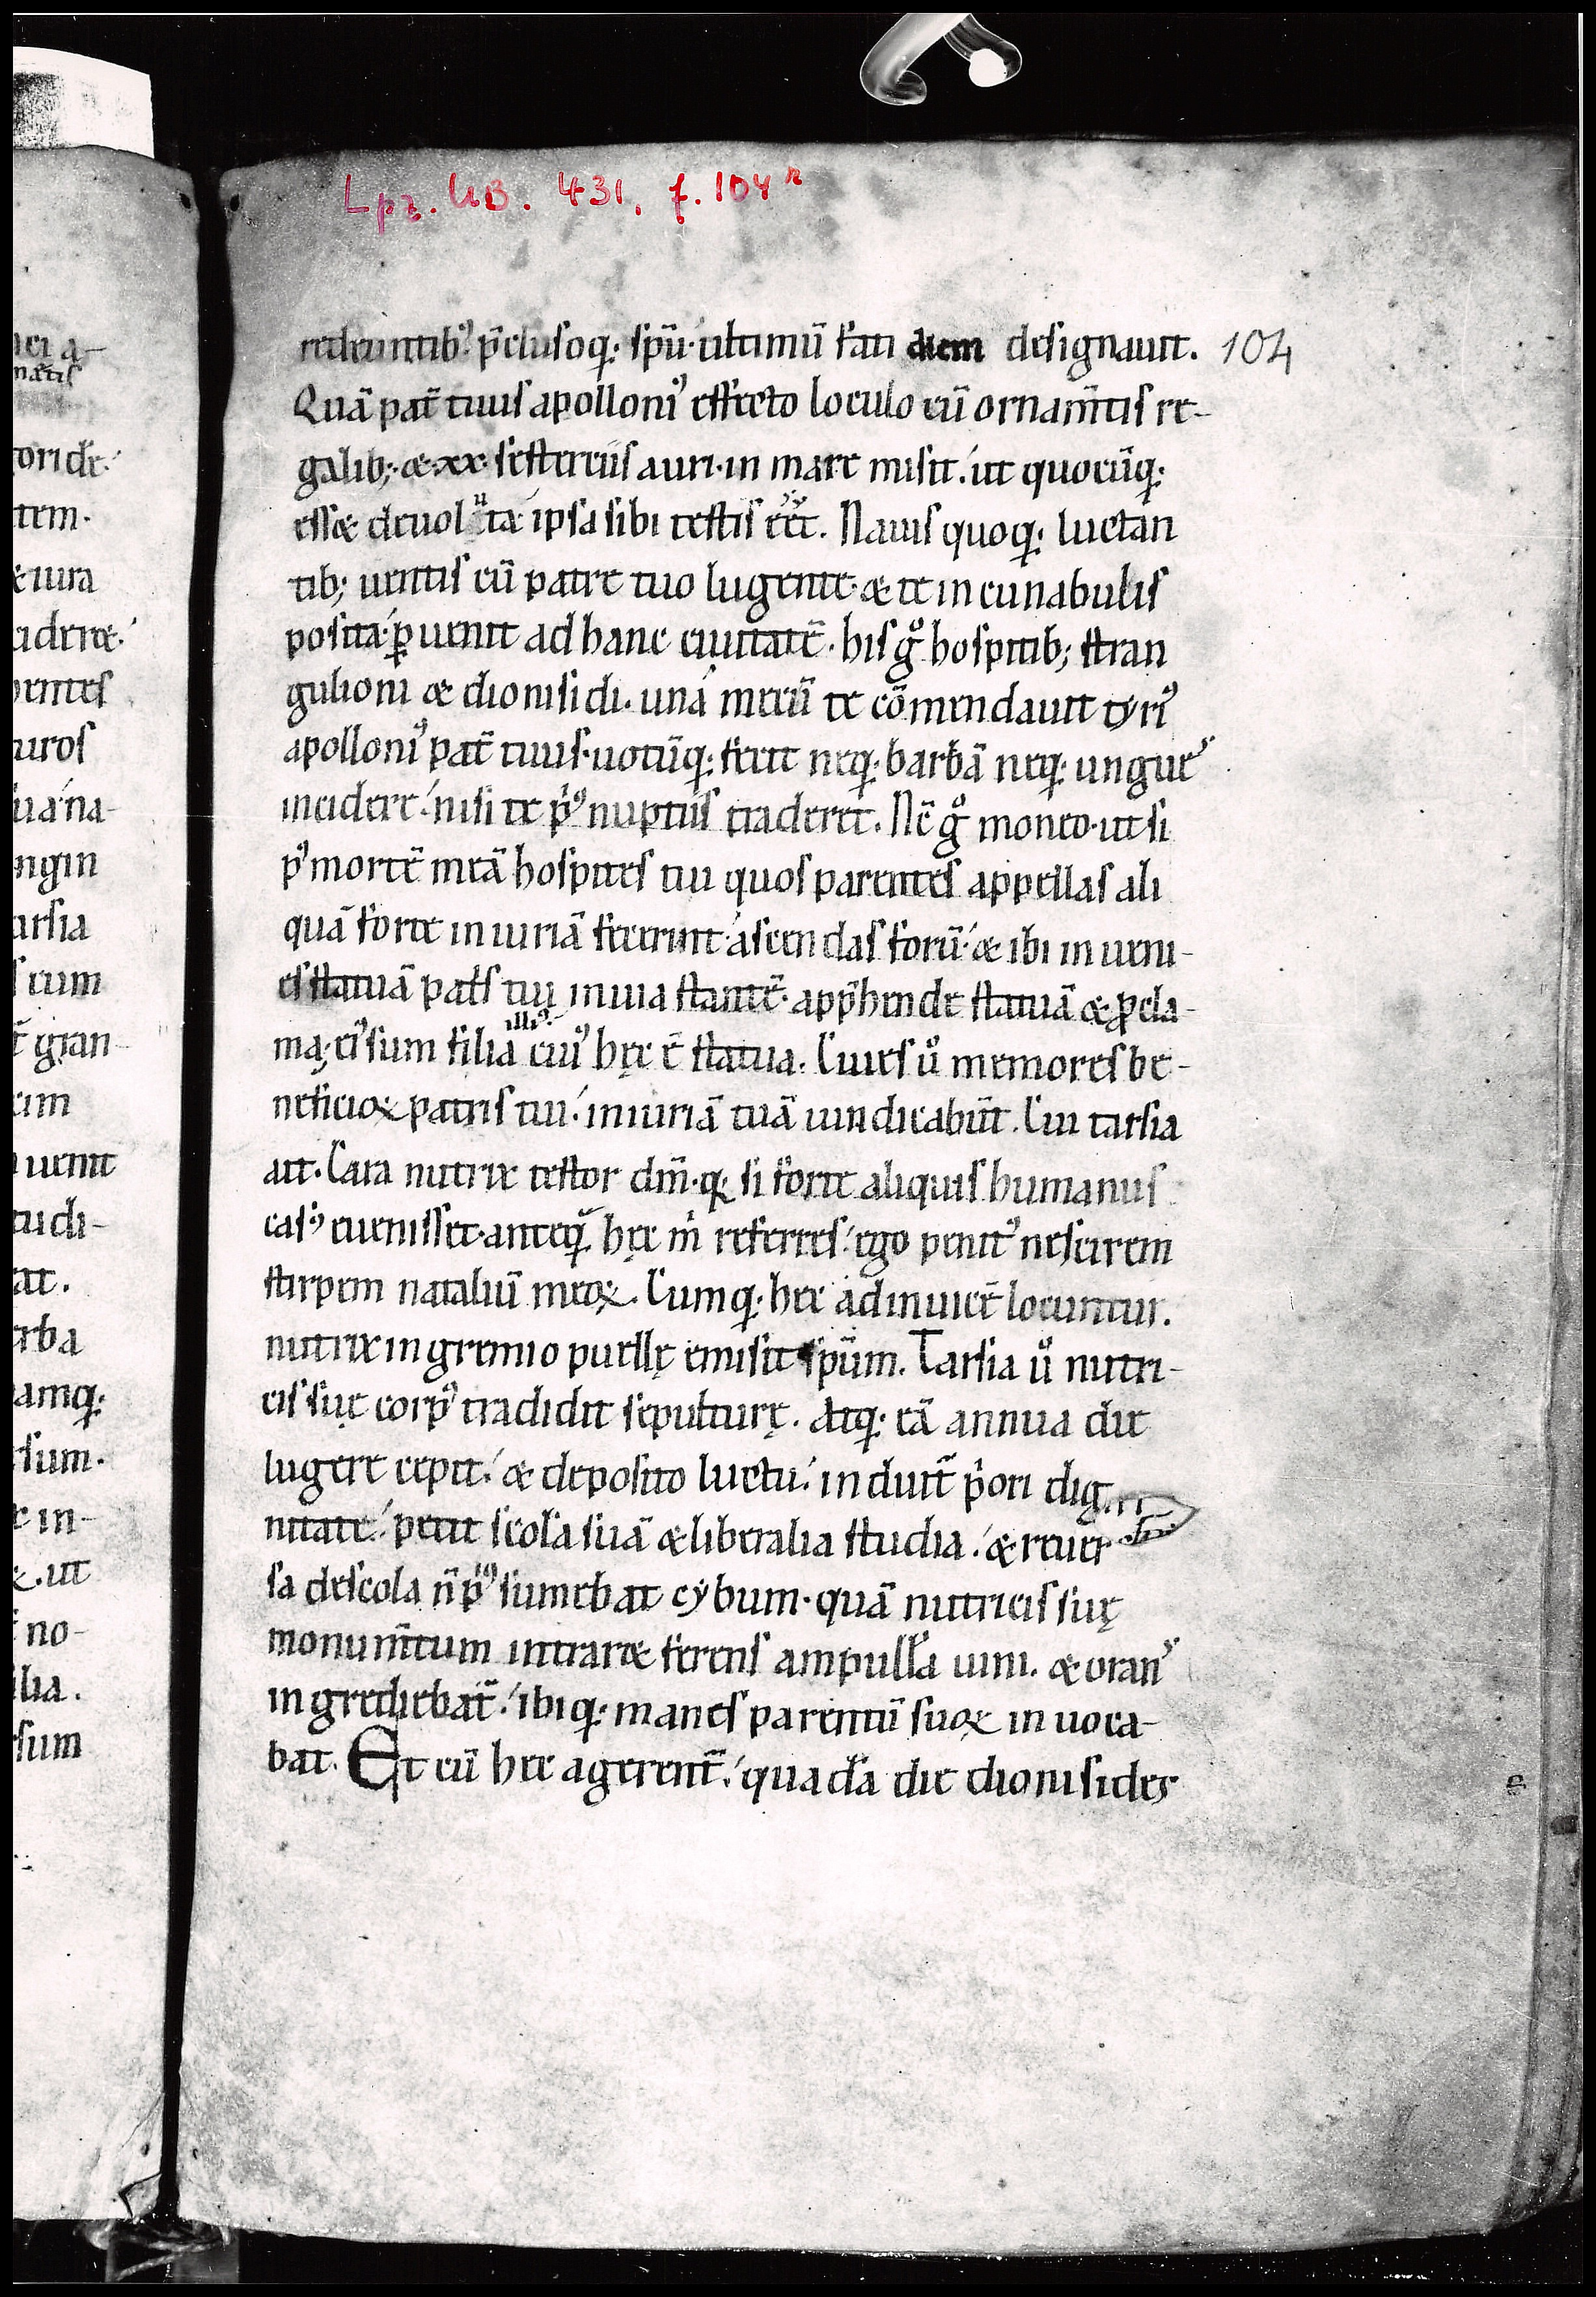 Lpz. UB. 431, f. 104r
redeuntib᷒. p̄clusoq; sp̄u. ultimū fati diem designauit. 104
Quā pat̄ tuus apolloni᷒ effecto loculo cū ornam̄tis re-
galib; & xx. sestertiis auri in mare misit. ut quocūq;
ess& deuoluta ipsa sibi testis eēt. Nauis quoq; luctan
tib; uentis cū patre tuo lugente. & te in cunabulis
posita. ꝑuenit ad hanc ciuitatē. his gͦ hospitib; stran
gulioni & dionisidi. una mecū te cōmendauit tyri᷒
apolloni᷒ pat̄ tuus. uotūq; fecit neq; barbā neq; ungues
incidere. nisi te p᷒ nuptiis traderet. Nc̄ gͦ moneo. ut si
p᷒ mortē meā hospites tui quos parentes appellas ali
quā forte iniuriā fecerint. ascendas forū. & ibi inueni-
es statuā pat̄s tui in uia stantē. app̄hende statuā & ꝓcla-
ma. ei᷒ sum filia
illi᷒
cui᷒ hęc ē statua. Ciues uͦ memores be-
neficioꝝ patris tui. iniuriā tuā uindicabūt. Cui tarsia
ait. Cara nutrix testor dm̄. q; si forte aliquis humanus
cas᷒ euenisset. anteq̄ hęc m̄ referres. ego penit᷒ nescirem
stirpem nataliū meoꝝ. Cumq; hęc adinuicē locuntur.
nutrix in gremio puellę emisit spūm. Tarsia uͦ nutri-
cis suę corp᷒ tradidit sepulturę. Atq; eā annua die
lugere cepit. & deposito luctu. induit̄ p̄ori dig
nitate. petit scolā suā & liberalia studia. & reuer
sa de scola n̄ p᷒ sumebat cybum. quā nutricis suę
monum̄tum intrar& ferens ampullā uini. & orans
ingrediebat̄. ibiq; manes parentū suoꝝ inuoca-
bat. Et cū hęc agerent̄. quadā die dionisides